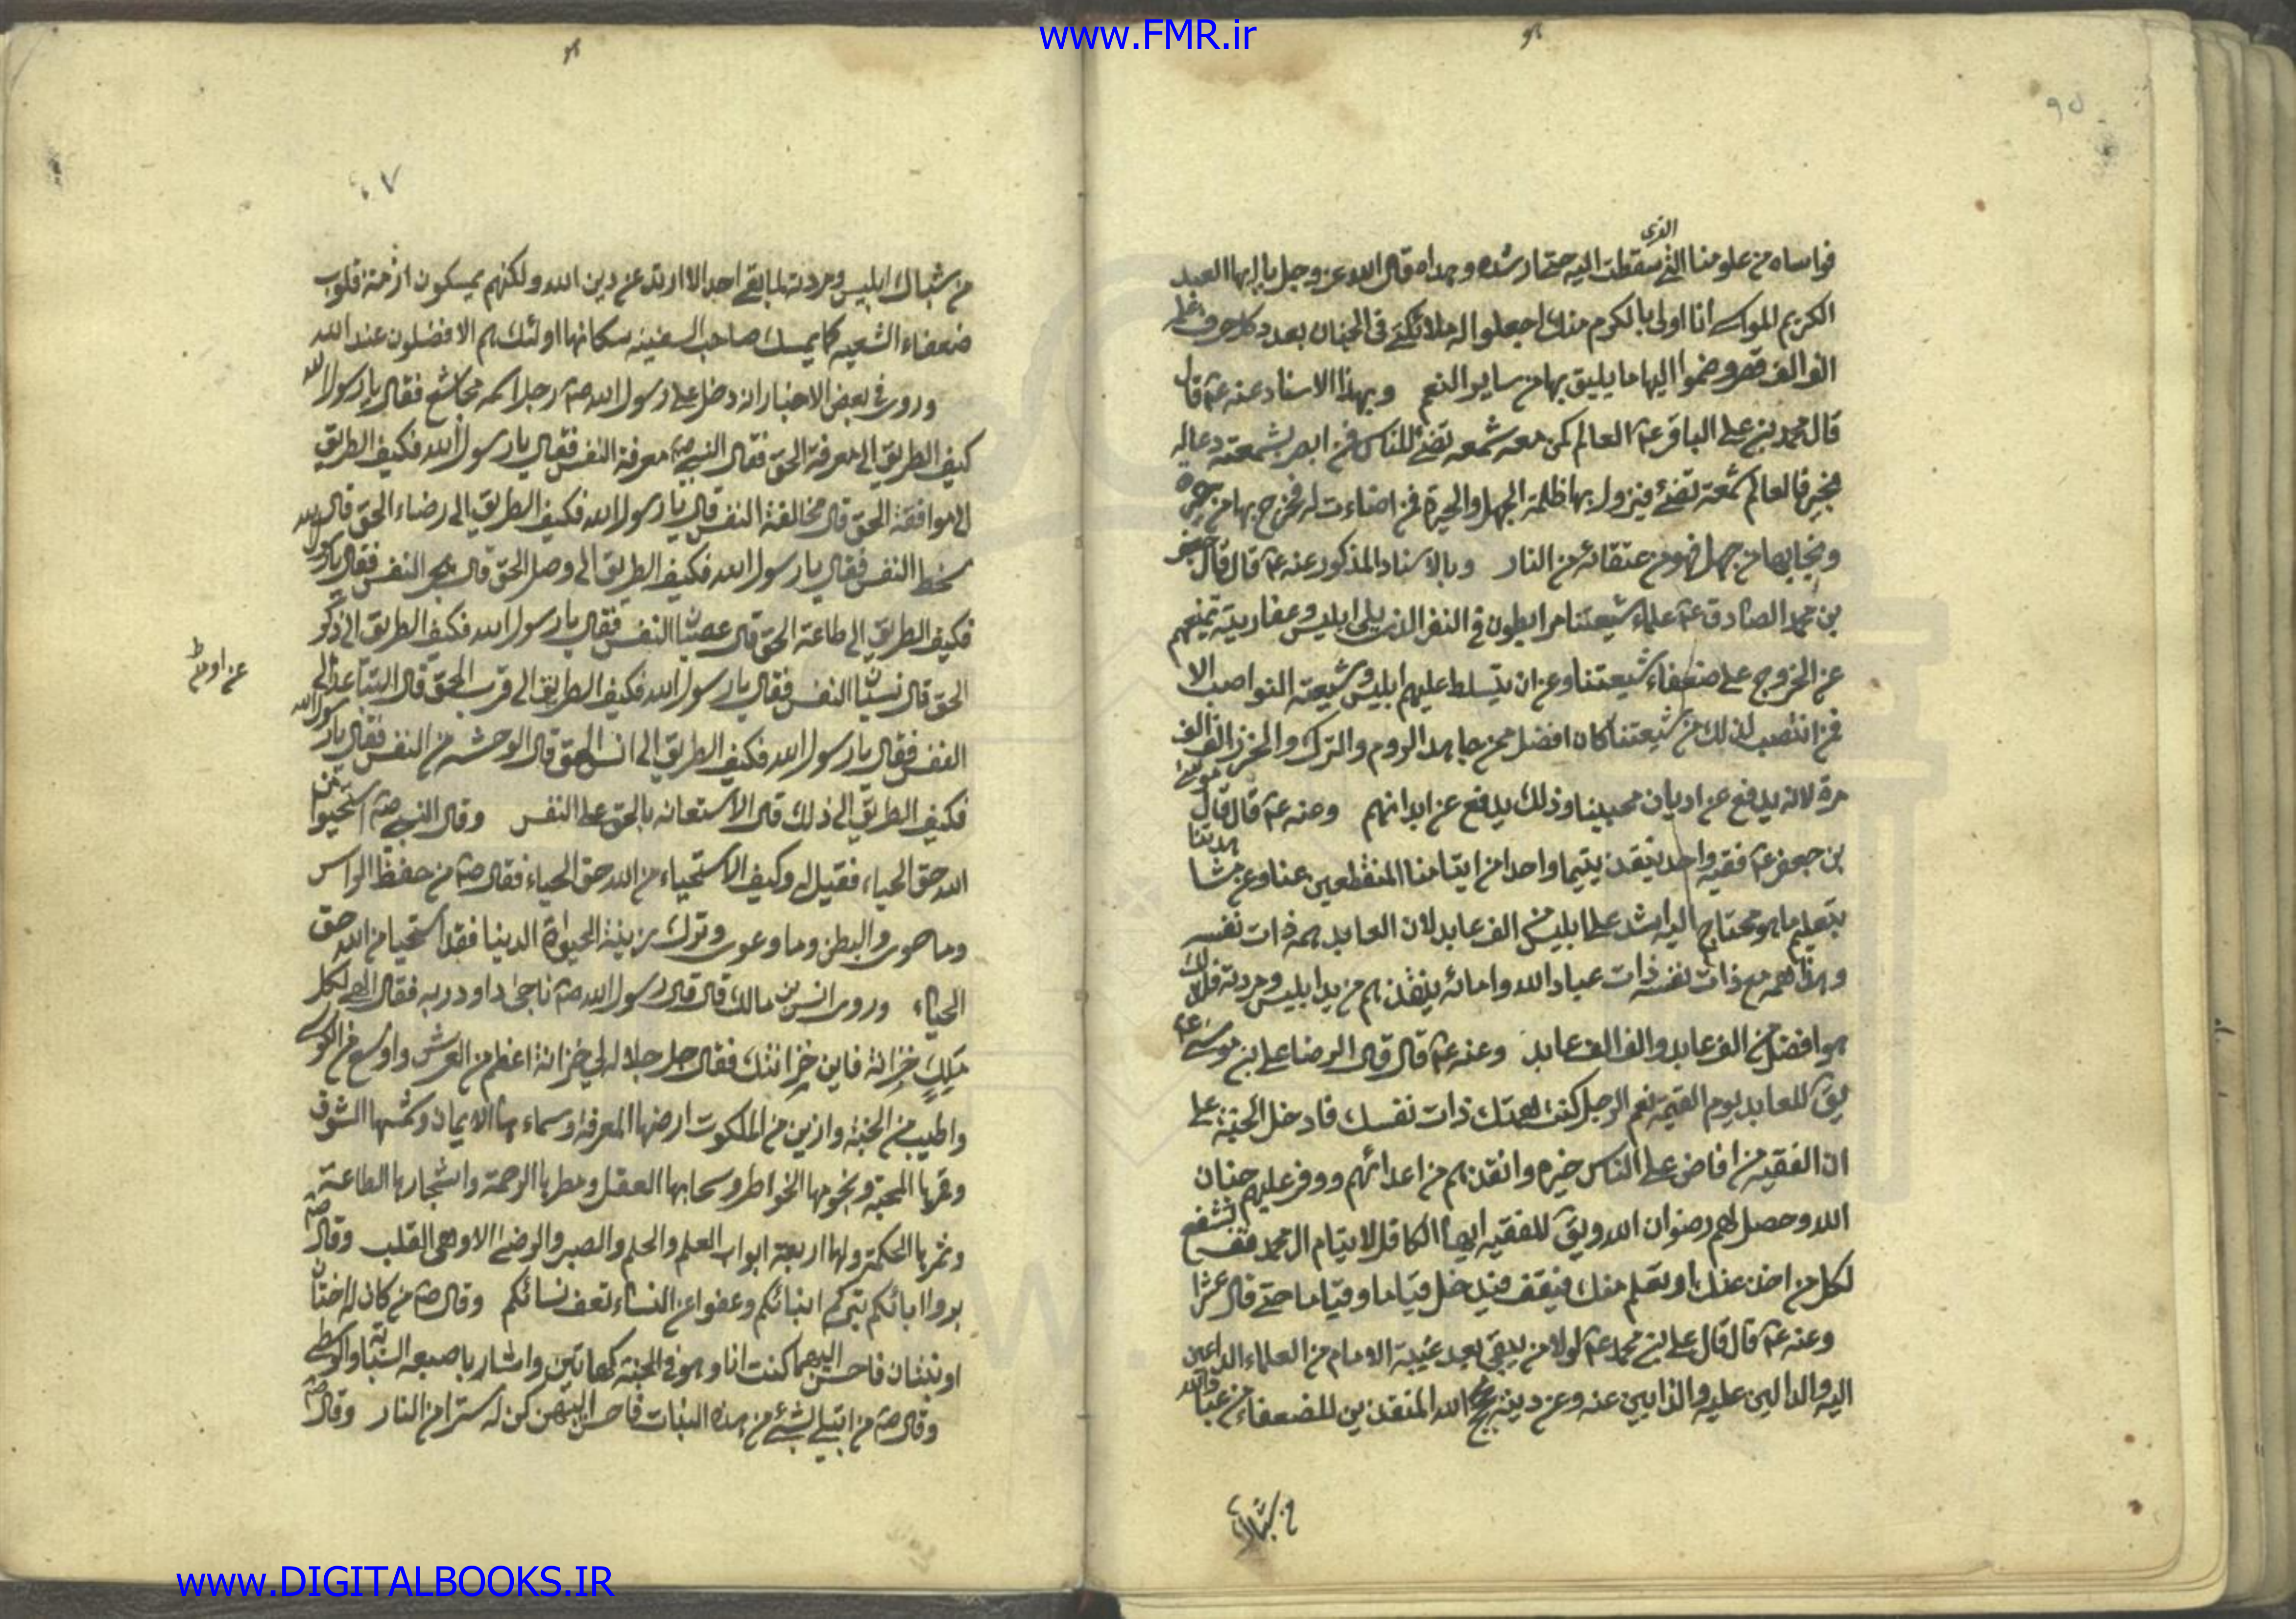 www.FMR.ir
فواساه من علومنا التی سقطت الیه حتی ارشده وهداه قال الله عز وجل یا ایها العبد
الکریم المواسی انا اولی بالکرم منک اجعلوا له ملائکتی فی الجنان بعدد کل حرف علمه
الف الف قصر وضموا الیها ما یلیق بها من سایر النعم وبهذا الاسناد عنه ع قال
قال محمد بن علی الباقر ع العالم کمن معه شمعه تضئ للناس فمن ابصر بشمعته دعا له
بخیر فالعالم شمعته تضئ فیزول بها ظلمة الجهل والحیرة فمن اضاءت له فخرج بها من حیرة
ونجا بها من جهل فهو من عتقائه من النار وبالاسناد المذکور عنه ع قال قال جعفر
بن محمد الصادق ع علماء شیعتنا مرابطون فی الثغر الذی یلی ابلیس وعفاریته یمنعهم
عن الخروج علی ضعفاء شیعتنا وعن ان یتسلط علیهم ابلیس وشیعته النواصب الا
فمن انتصب لذلک من شیعتنا کان افضل ممن جاهد الروم والترک والخزر الف الف
مرة لانه یدفع عن ادیان محبینا وذلک یدفع عن ابدانهم وعنه ع قال قال موسی
بن جعفر ع فقیه واحد ینقذ یتیما واحدا من ایتامنا المنقطعین عنا وعن مشاهدتنا
بتعلیم ما هو محتاج الیه اشد علی ابلیس من الف عابد لان العابد همه ذات نفسه
وهذا همه مع ذات نفسه ذات عباد الله وامائه ینقذهم من ید ابلیس ومردته فلذلک
هو افضل من الف عابد والف الف عابد وعنه ع قال قال الرضا علی بن موسی ع
یق للعابد یوم القیمة نعم الرجل کنت همتک ذات نفسک فادخل الجنة علی
ان الفقیه من افاض علی الناس خیره وانقذهم من اعدائهم ووفر علیهم جنان
الله وحصل لهم رضوان الله ویق للفقیه ایها الکافل لایتام ال محمد قف تشفع
لکل من اخذ عنک او تعلم منک فیقف فیدخل فیاما وفیاما حتی قال عشرا
وعنه ع قال قال علی بن محمد ع لولا من یبقی بعد غیبة الامام من العلماء الداعین
الیه والدالین علیه والذابین عنه وعن دینه بحجج الله المنقذین للضعفاء من عباد الله
من شباک
من شباک ابلیس ومردته لما بقی احد الا ارتد عن دین الله ولکنهم یمسکون ازمة قلوب
ضعفاء الشیعه کما یمسک صاحب السفینه سکانها اولئک هم الافضلون عند الله
وروی فی بعض الاخبار انه دخل علی رسول الله ص رجل اسمه مجاشع فقال یا رسول الله
کیف الطریق الی معرفة الحق فقال النبی ص معرفة النفس فقال یا رسول الله فکیف الطریق
الی موافقة الحق قال مخالفة النفس قال یا رسول الله فکیف الطریق الی رضاء الحق قال
سخط النفس فقال یا رسول الله فکیف الطریق الی وصل الحق قال هجر النفس فقال یا رسول الله
فکیف الطریق الی طاعة الحق قال عصیان النفس فقال یا رسول الله فکیف الطریق الی ذکر
الحق قال نسیان النفس فقال یا رسول الله فکیف الطریق الی قرب الحق قال التباعد
النفس فقال یا رسول الله فکیف الطریق الی انس الحق قال الوحشه من النفس فقال یا رسول الله
فکیف الطریق الی ذلک قال الاستعانه بالحق علی النفس وقال النبی ص استحیوا من
الله حق الحیاء فقیل له وکیف الاستحیاء من الله حق الحیاء فقال ص من حفظ الراس
وما حوی والبطن وما وعی وترک زینة الحیوة الدنیا فقد استحیا من الله حق
الحیاء وروی انس بن مالک قال قال رسول الله ص ناجی داود ربه فقال الهی لکل
ملک خزانة فاین خزانتک فقال جل جلاله لی خزانة اعظم من العرش واوسع من الکرسی
واطیب من الجنة وازین من الملکوت ارضها المعرفة وسماءها الایمان وشمسها الشوق
وقمرها المحبة ونجومها الخواطر وسحابها العقل ومطرها الرحمة واشجارها الطاعة
وثمرها الحکمة ولها اربعة ابواب العلم والحلم والصبر والرضئ الا وهی القلب وقال ص
بروا ابائکم تبرکم ابنائکم وعفوا عن النساء تعف نسائکم وقال ص من کان له اختان
او بنتان فاحسن الیهما کنت انا وهو فی الجنة کهاتین واشار باصبعه السبابه والوسطی
وقال ص من ابتلی بشئ من هذه البنات فاحسن الیهن کن له سترا من النار وقال ص
www.DIGITALBOOKS.IR